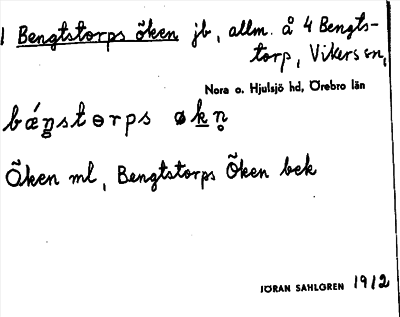 1 Bengtstorps öken jb, allm. å 4 Bengts-
torp, Vikers sn,
Nora o. Hjulsjö hd, Örebro län
bǽŋstɵrps økn̥
Öken ml, Bengtstorps Öken bek
JÖRAN SAHLGREN 1912